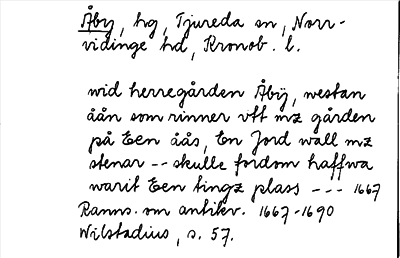 Åby, hg, Tjureda sn, Norr-
vidinge hd, Kronob. l.
wid herregården Åbÿ, westan
åån som rinner vtt mz gården
på Een åås, En Jord wall mz
stenar -- skulle fordom haffwa
warit Een tingz plass --- 1667
Ranns. om antikv. 1667-1690
Wilstadius, s. 57.